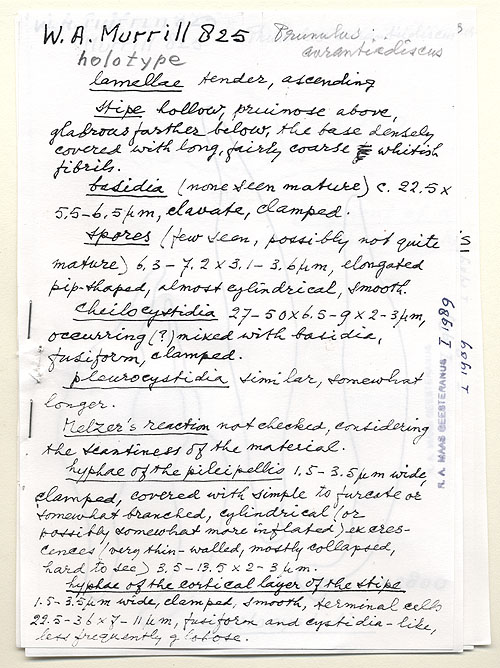 W. A. Murrill 825
Prunulus
aurantiidiscus
holotype
lamellae tender, ascending
stipe hollow, pruinose above,
glabrous farther below, the base densely
covered with long, fairly coarse whitish
fibrils.
basidia (none seen mature) c. 22.5 x
5.5-6.5 µm, clavate, clamped.
spores (few seen, possibly not quite
mature) 6.3 - 7.2 x 3.1 - 3.6 µm, elongated
pip-shaped, almost cylindrical, smooth.
cheilocystidia 27-50 x 6.5-9 x 2-3 µm,
occurring (?) mixed with basidia,
fusiform, clamped.
pleurocystidia similar, somewhat
longer.
Melzer's reaction not checked, considering
the scantiness of the material.
hyphae of the pileipellis 1.5-3.5 µm wide,
clamped, covered with simple to furcate or
somewhat branched, cylindrical (or
possibly somewhat more inflated) excres-
cences (very thin-walled, mostly collapsed,
hard to see) 3.5-13.5 x 2-3 µm.
hyphae of the cortical layer of the stipe
1.5-3.5 µm wide, clamped, smooth, terminal cells
22.5-36 x 7-11 µm, fusiform and cystidia-like,
less frequently globose.
R. A. MAAS GEESTERANUS I 1989